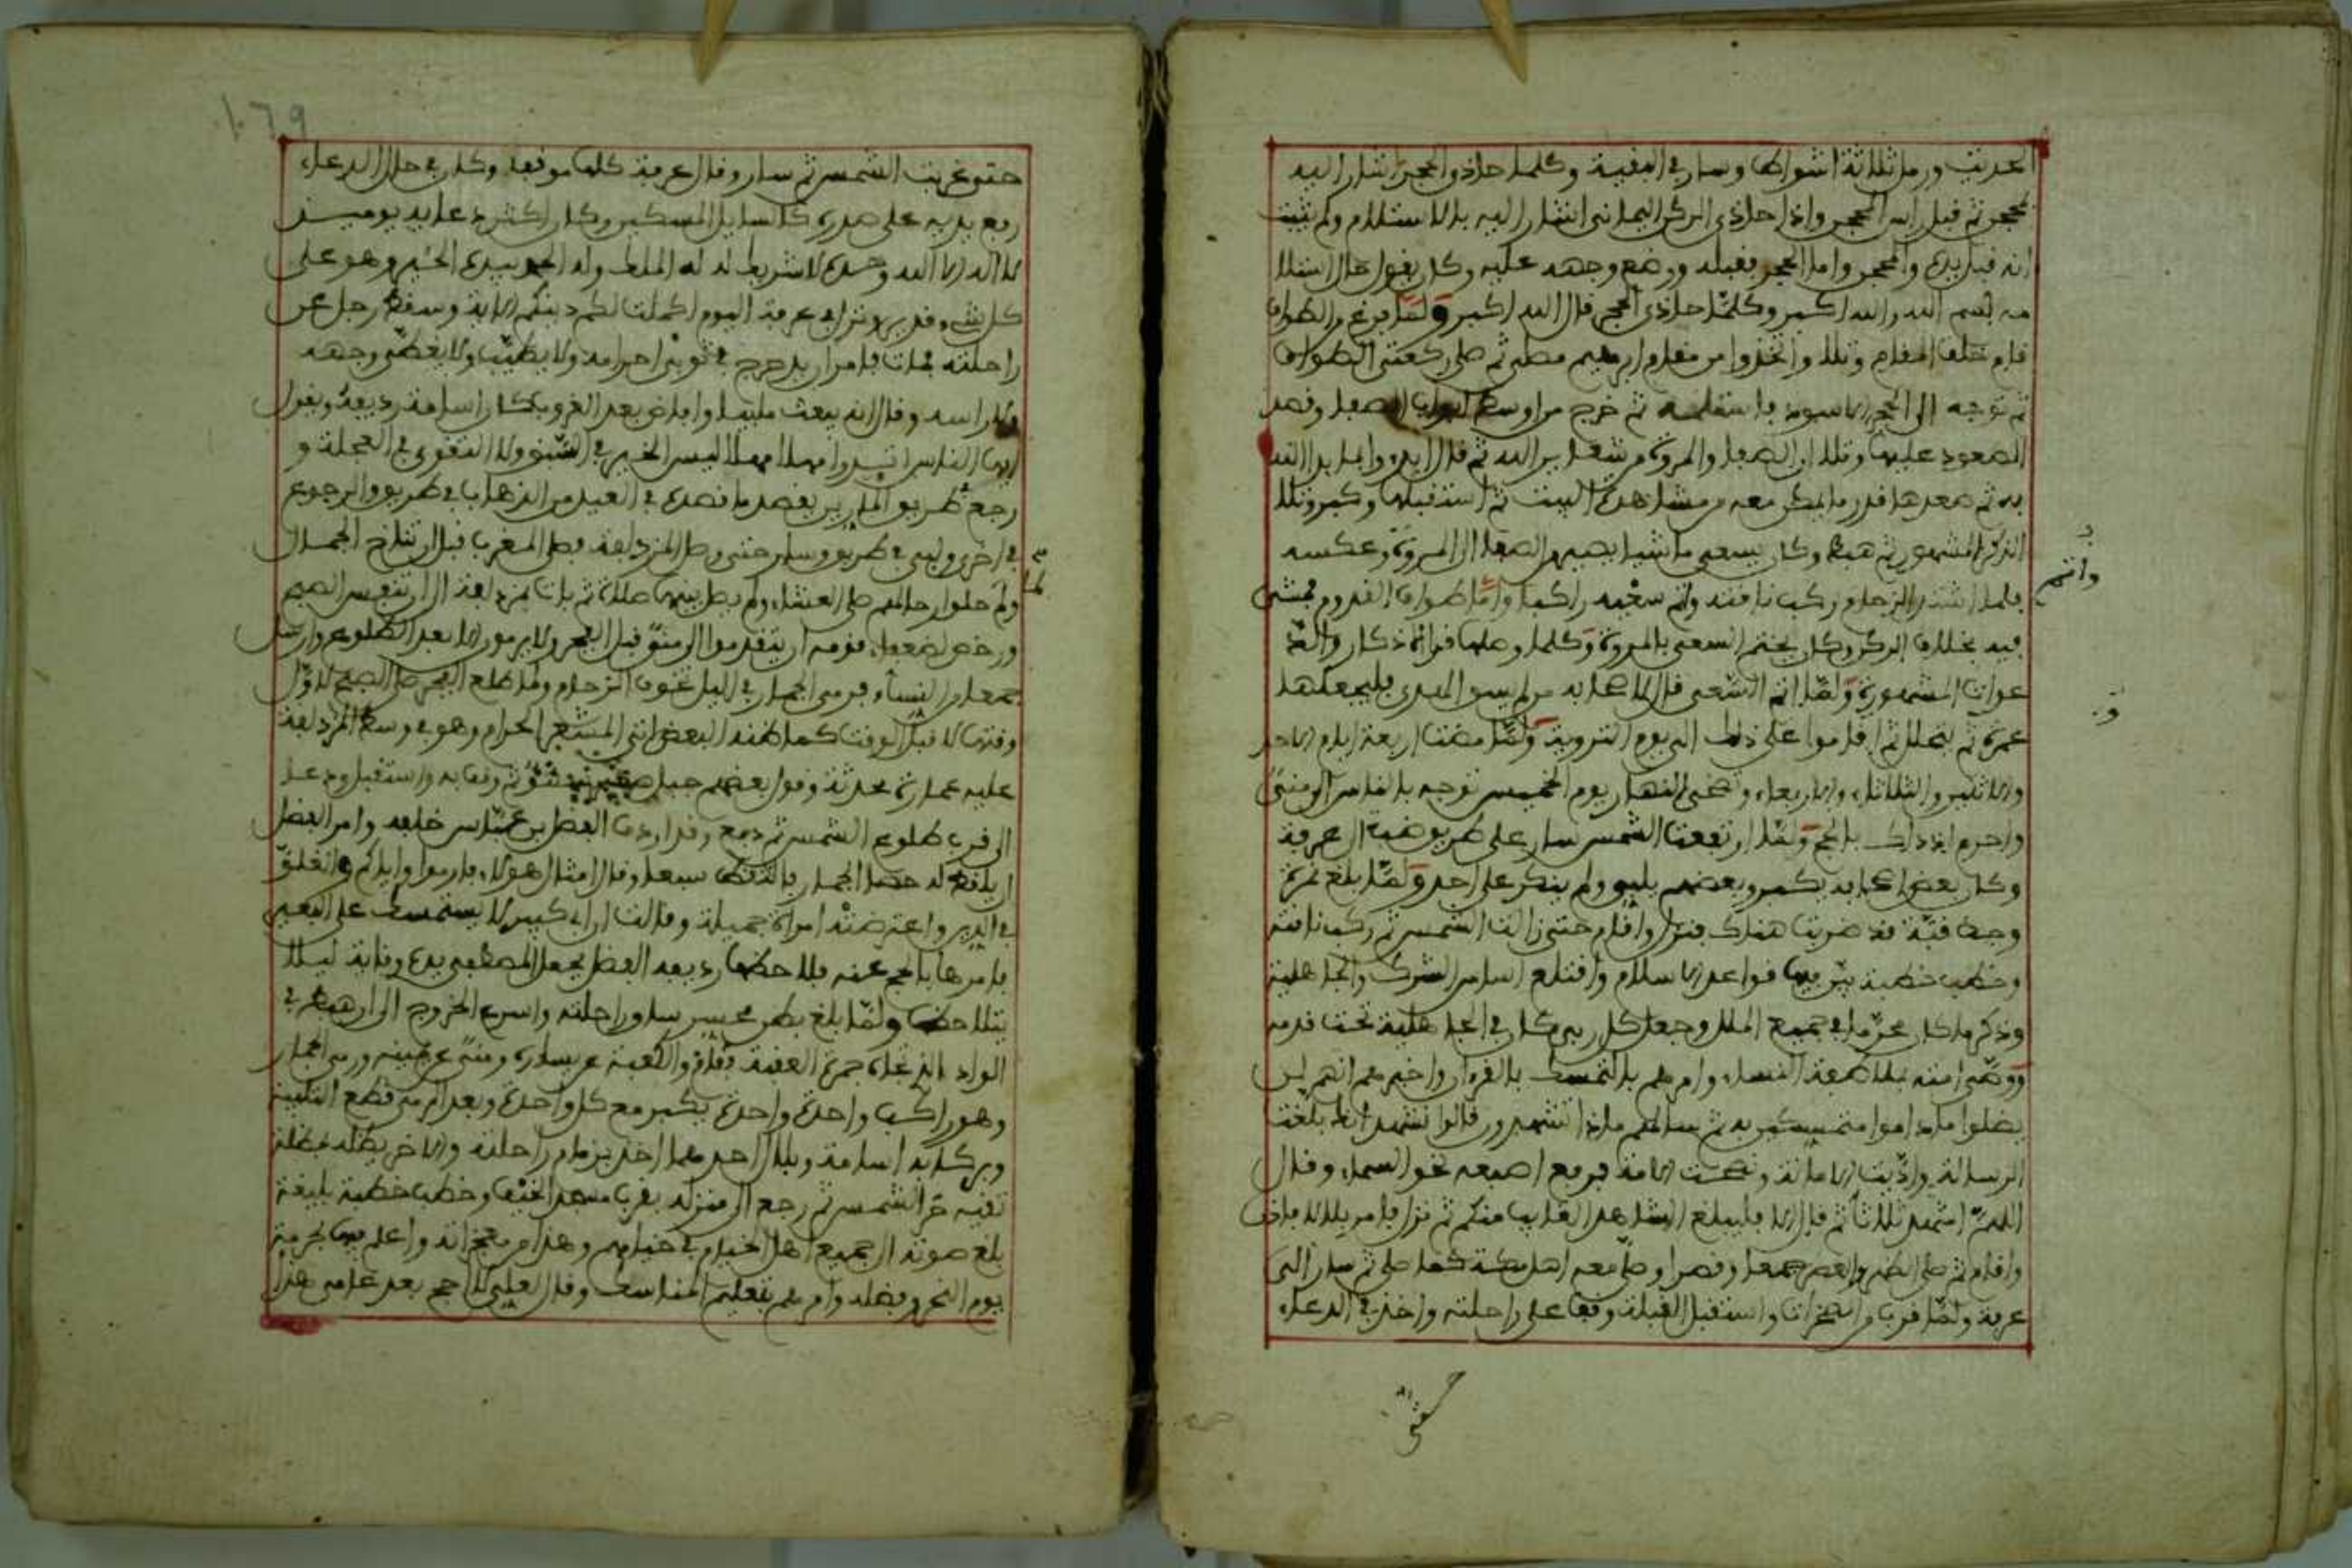 الحديث ورمل ثلاثة اشواط ومشى في البقية وكلما حاذى الحجر اشار اليه
بمحجن ثم قبل راس المحجن واذا حاذى الركن اليماني اشار اليه بالاستلام ولم يثبت
انه قبل يده والمحجن واما الحجر فقبله ووضع وجهه عليه وكان يقول حال استلا
مه بسم الله والله اكبر وكلما حاذى الحجر قال الله اكبر ولما فرغ من الطواف
قام خلف المقام وتلا واتخذوا من مقام ابراهيم مصلى ثم صلى ركعتى الطواف
ثم توجه الى الحجر الاسود فاستلمه ثم خرج من اوسط ابواب الصفا وقصد
الصعود عليها وتلا ان الصفا والمروة من شعاير الله ثم قال ابدءوا بما بدا الله
به ثم صعدها قدر ما امكن معه من مشاهدة البيت ثم استقبلها وكبر وتلا
الذكر المشهور ثم هبط وكان يسعى ماشيا بينهما من الصفا الى المروة وعكسه
فلما اشتد الزحام ركب ناقته واتم سعيه راكبا واما طواف القدوم فمشى
فيه بخلاف الركن وكان يختم السعي بالمروة وكلما وصلها قرا الاذكار والد
عوات المشهورة ولما اتم السعي قال لاصحابه من لم يسق الهدى فليجعلها
عمرة ثم يتحلل ثم اقاموا على ذلك الى يوم التروية ولما مضت اربعة ايام الاحد
والاثنين والثلاثاء والاربعاء وضحى النهار يوم الخميس توجه بالناس الى منى
واحرم اذ ذاك بالحج ولما ارتفعت الشمس سار على طريق ضب الى عرفة
وكان بعض اصحابه يكبر وبعضهم يلبى ولم ينكر على احد ولما بلغ نمرة
وجد قبة قد ضربت هناك فنزل واقام حتى زالت الشمس ثم ركب ناقته
وخطب خطبة بين فيها قواعد الاسلام واقتلع اساس الشرك والجاهلية
وذكر ما كان محرما في جميع الملل وجعل كل ربى كان في الجاهلية تحت قدمه
ووصى امته بملاطفة النساء وامرهم بالتمسك بالقرءان واخبرهم انهم لن
يضلوا ما داموا متمسكين به ثم سالهم ماذا تشهدون قالوا نشهد انك بلغت
الرسالة واديت الامانة ونصحت الامة فرفع اصبعه نحو السماء وقال
اللهم اشهد ثلاثا ثم قال الا فليبلغ الشاهد الغايب منكم ثم نزل فامر بلالا فاذن
واقام ثم صلى الظهر والعصر جمعا وقصرا وصلى معه اهل مكة كما صلى ثم سار الى
عرفة ولما قرب من الصخرات واستقبل القبلة وقف على راحلته واخذ في الدعاء
وانهم
حتى
١٠٦٩
حتى غربت الشمس ثم سار وقال عرفة كلها موقف وكان في حال الدعاء
رفع يديه على صدره كالسايل المسكين وكان اكثر دعايه يومئذ
لا اله الا الله وحده لا شريك له له الملك وله الحمد بيده الخير وهو على
كل شيء قدير ونزل في عرفة اليوم اكملت لكم دينكم الاية وسقط رجل عن
راحلته فمات فامر ان يدرج في ثوبى احرامه ولا يطيب ولا يغطى وجهه
ولا راسه وقال انه يبعث ملبيا وافاض بعد الغروب وكان اسامة رديفه ويقول
ايها الناس مهلا مهلا ليس الخير في الشوق ولا التقوى في العجلة و
رجع طريق المازمين يقصد ما قصده في العيد من الذهاب في طريق والرجوع
في اخرى ولبى في طريقه وسار حتى وصل المزدلفة فصلى المغرب قبل ان تناخ الجمال
ولم حلوا رحالهم صلى العشاء ولم يصل بينها صلاة ثم بات بمزدلفة الى ان تنفس الصبح
ورخص لضعفاء قومه ان يتقدموا الى منى قبل الفجر ولا يرمون الا بعد الطلوع وارسل
جمعا من النساء فرمى الجمار في الليل خوف الزحام ولما طلع الفجر صلى الصبح لاول
وقتها لا قبل الوقت كما ظنه البعض اتى المشعر الحرام وهو في وسط المزدلفة
عليه عمارة محدثة وقول بعضهم جبل صغير ثم وقف به واستقبل ودعا
الى قرب طلوع الشمس ثم دفع وقد اردف الفضل بن عباس خلفه وامر الفضل
ان يلتقط له حصا الجمار فالتقط سبعا وقال امثال هؤلاء فارموا واياكم والغلو
في الدين واعترضته امراة جميلة وقالت ان ابى كبير لا يستمسك على البعير
فامرها بالحج عنه فلاحظها رديفه الفضل فجعل المصطفى يده وقاية ليلا
يتلاحظا ولما بلغ بطن محسر ساق راحلته واسرع الخروج الى ان هبط في
الوادى الذى تجاه جمرة العقبة والكعبة عن يساره ومنى عن يمينه ورمى الجمار
وهو راكب واحدة واحدة يكبر مع كل واحدة وبعد الرمى قطع التلبية
وبركابه اسامة وبلال احدهما اخذ بزمام راحلته والاخر يظله بمظلة
تقيه حر الشمس ثم رجع الى منزله بقرب مسجد الخيف وخطب خطبة بليغة
بلغ صوته الى جميع اهل الخيام في خيامهم وهذا من معجزاته واعلم فيها بحرمة
يوم النحر وفضله وامرهم بتعليم المناسك وقال لعلى لا احج بعد عامى هذا